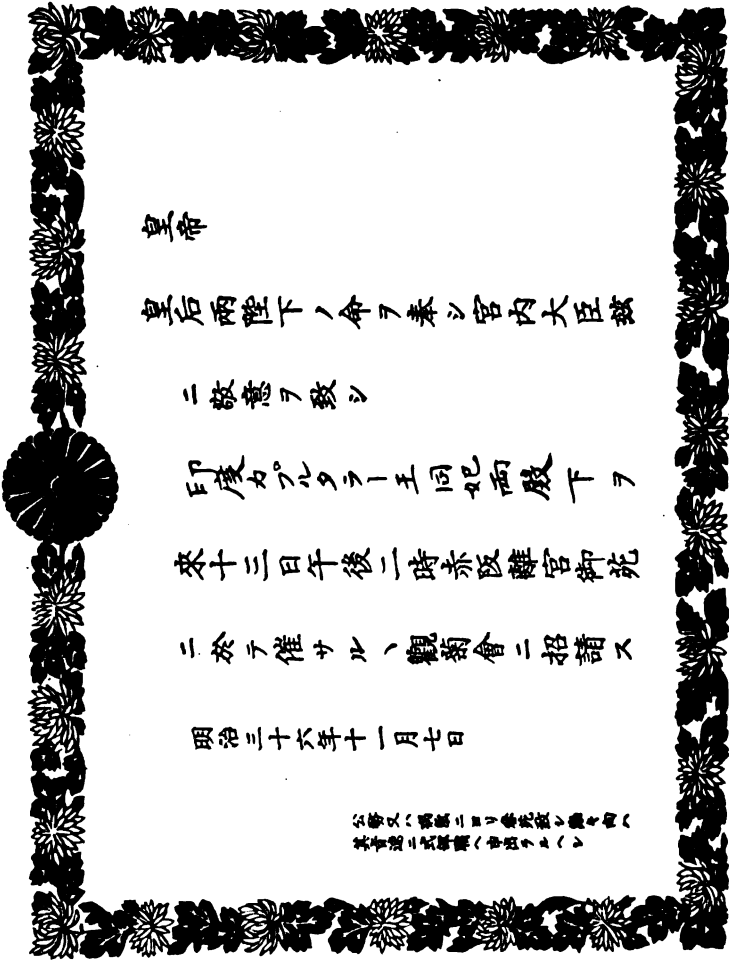 皇帝
皇后兩陛下ノ命ヲ奉シ宮内大臣玆
ニ敬意ヲ致シ
印度カプルタラー王同妃両殿下ヲ
來十三日午後二時赤阪離宮御苑
ニ於テ催サルヽ觀菊會ニ招請ス
明治三十六年十一月七日
公務又ハ病氣ニヨリ參苑致シ
其旨速ニ式部職ヘ申出ラルヘシ